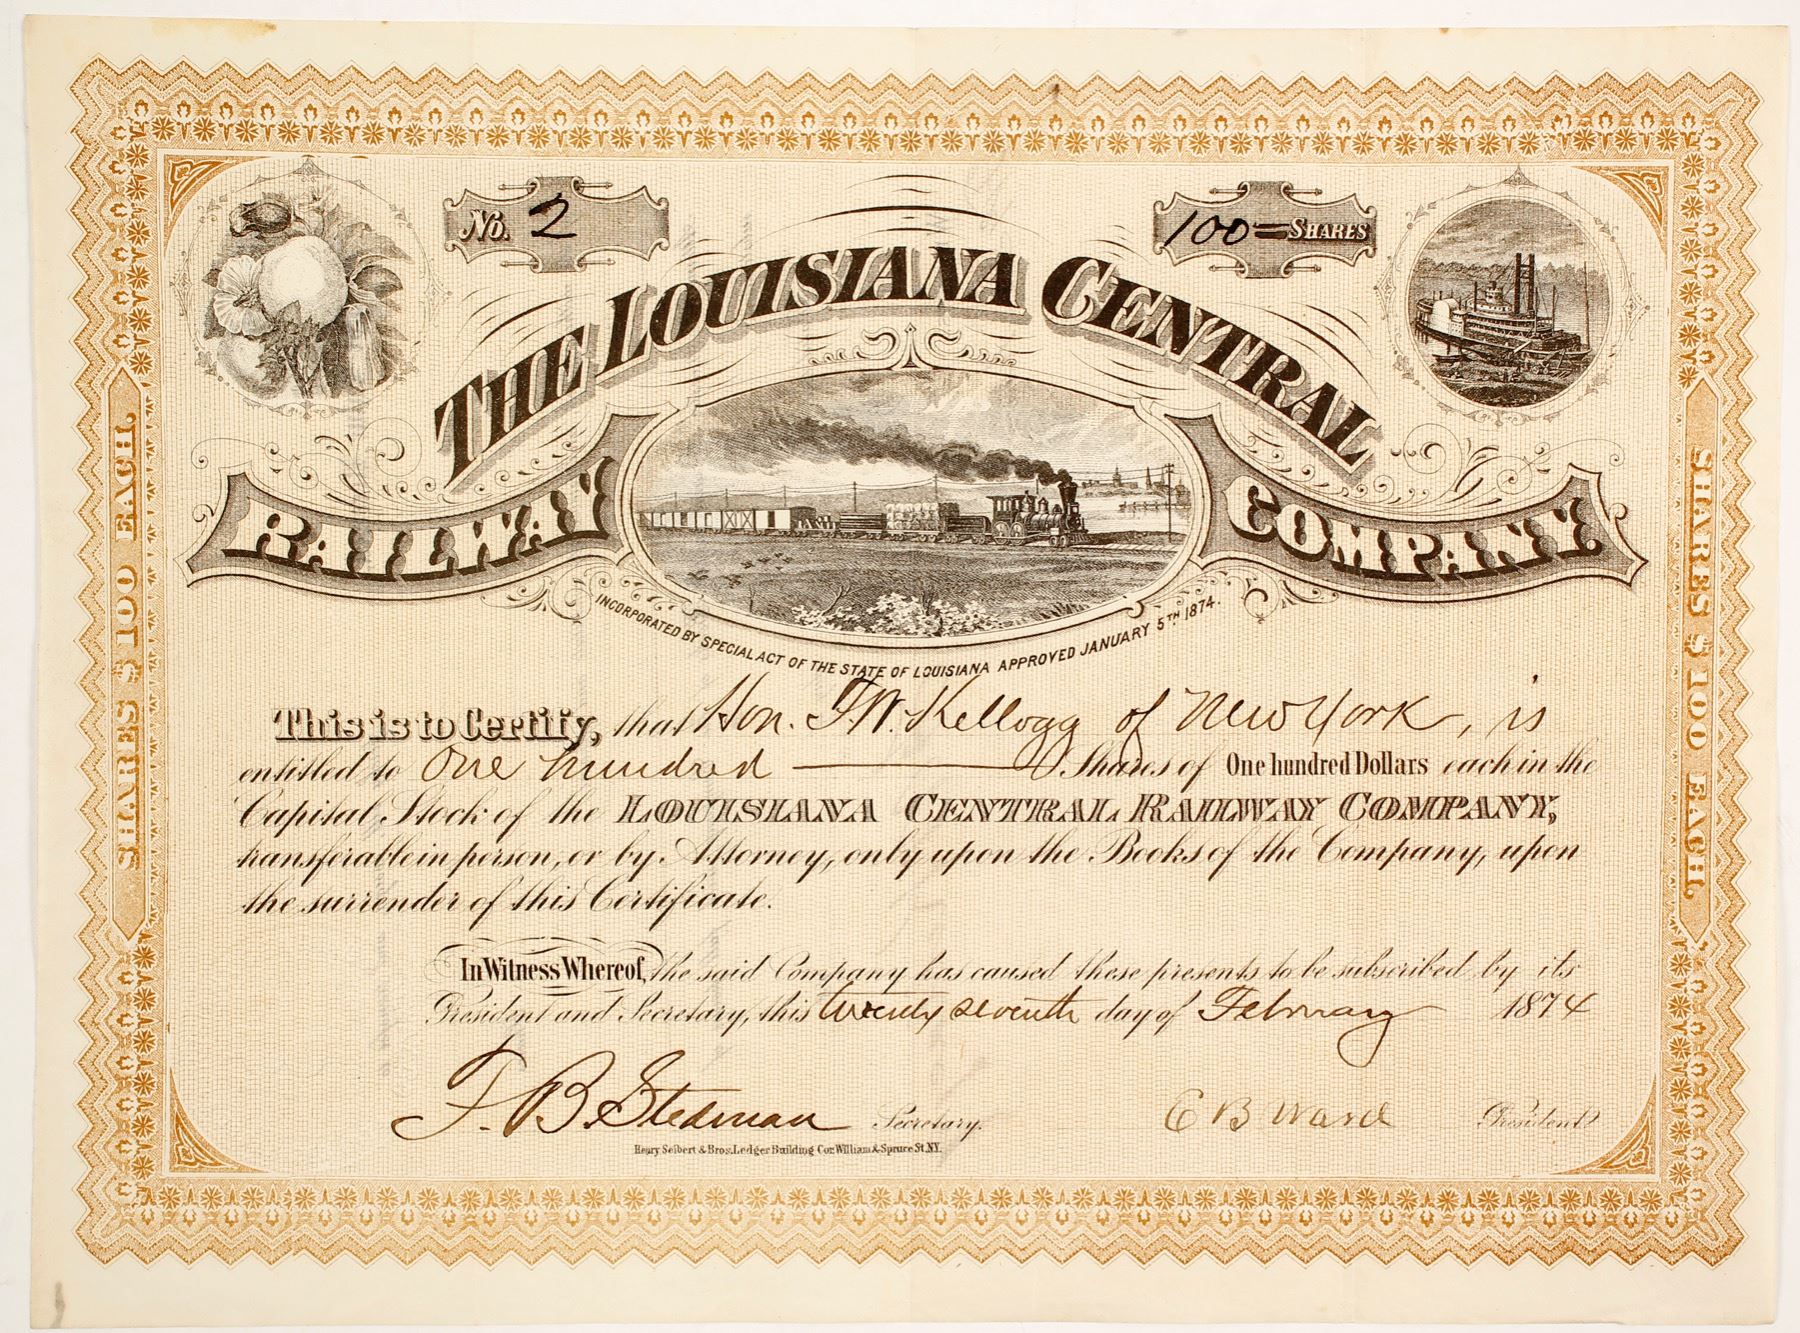 No. 2
100= SHARES
THE LOUISIANA CENTRAL
RAILWAY COMPANY.
INCORPORATED BY SPECIAL ACT OF THE STATE OF LOUISIANA APPROVED JANUARY 5TH 1874.
SHARES $100 EACH.
SHARES $100 EACH.
This is to Certify, that Hon. F. W. Kellogg of New York, is
entitled to One hundred Shares of One hundred Dollars each in the
Capital Stock of the LOUISIANA CENTRAL RAILWAY COMPANY,
transferable in person, or by Attorney, only upon the Books of the Company, upon
the surrender of this Certificate.
In Witness Whereof, the said Company has caused these presents to be subscribed by its
President and Secretary, this twenty seventh day of February 1874
F. B. Stedman Secretary.
E B Ward President
Henry Seibert & Bros. Ledger Building Cor. William & Spruce St. N.Y.